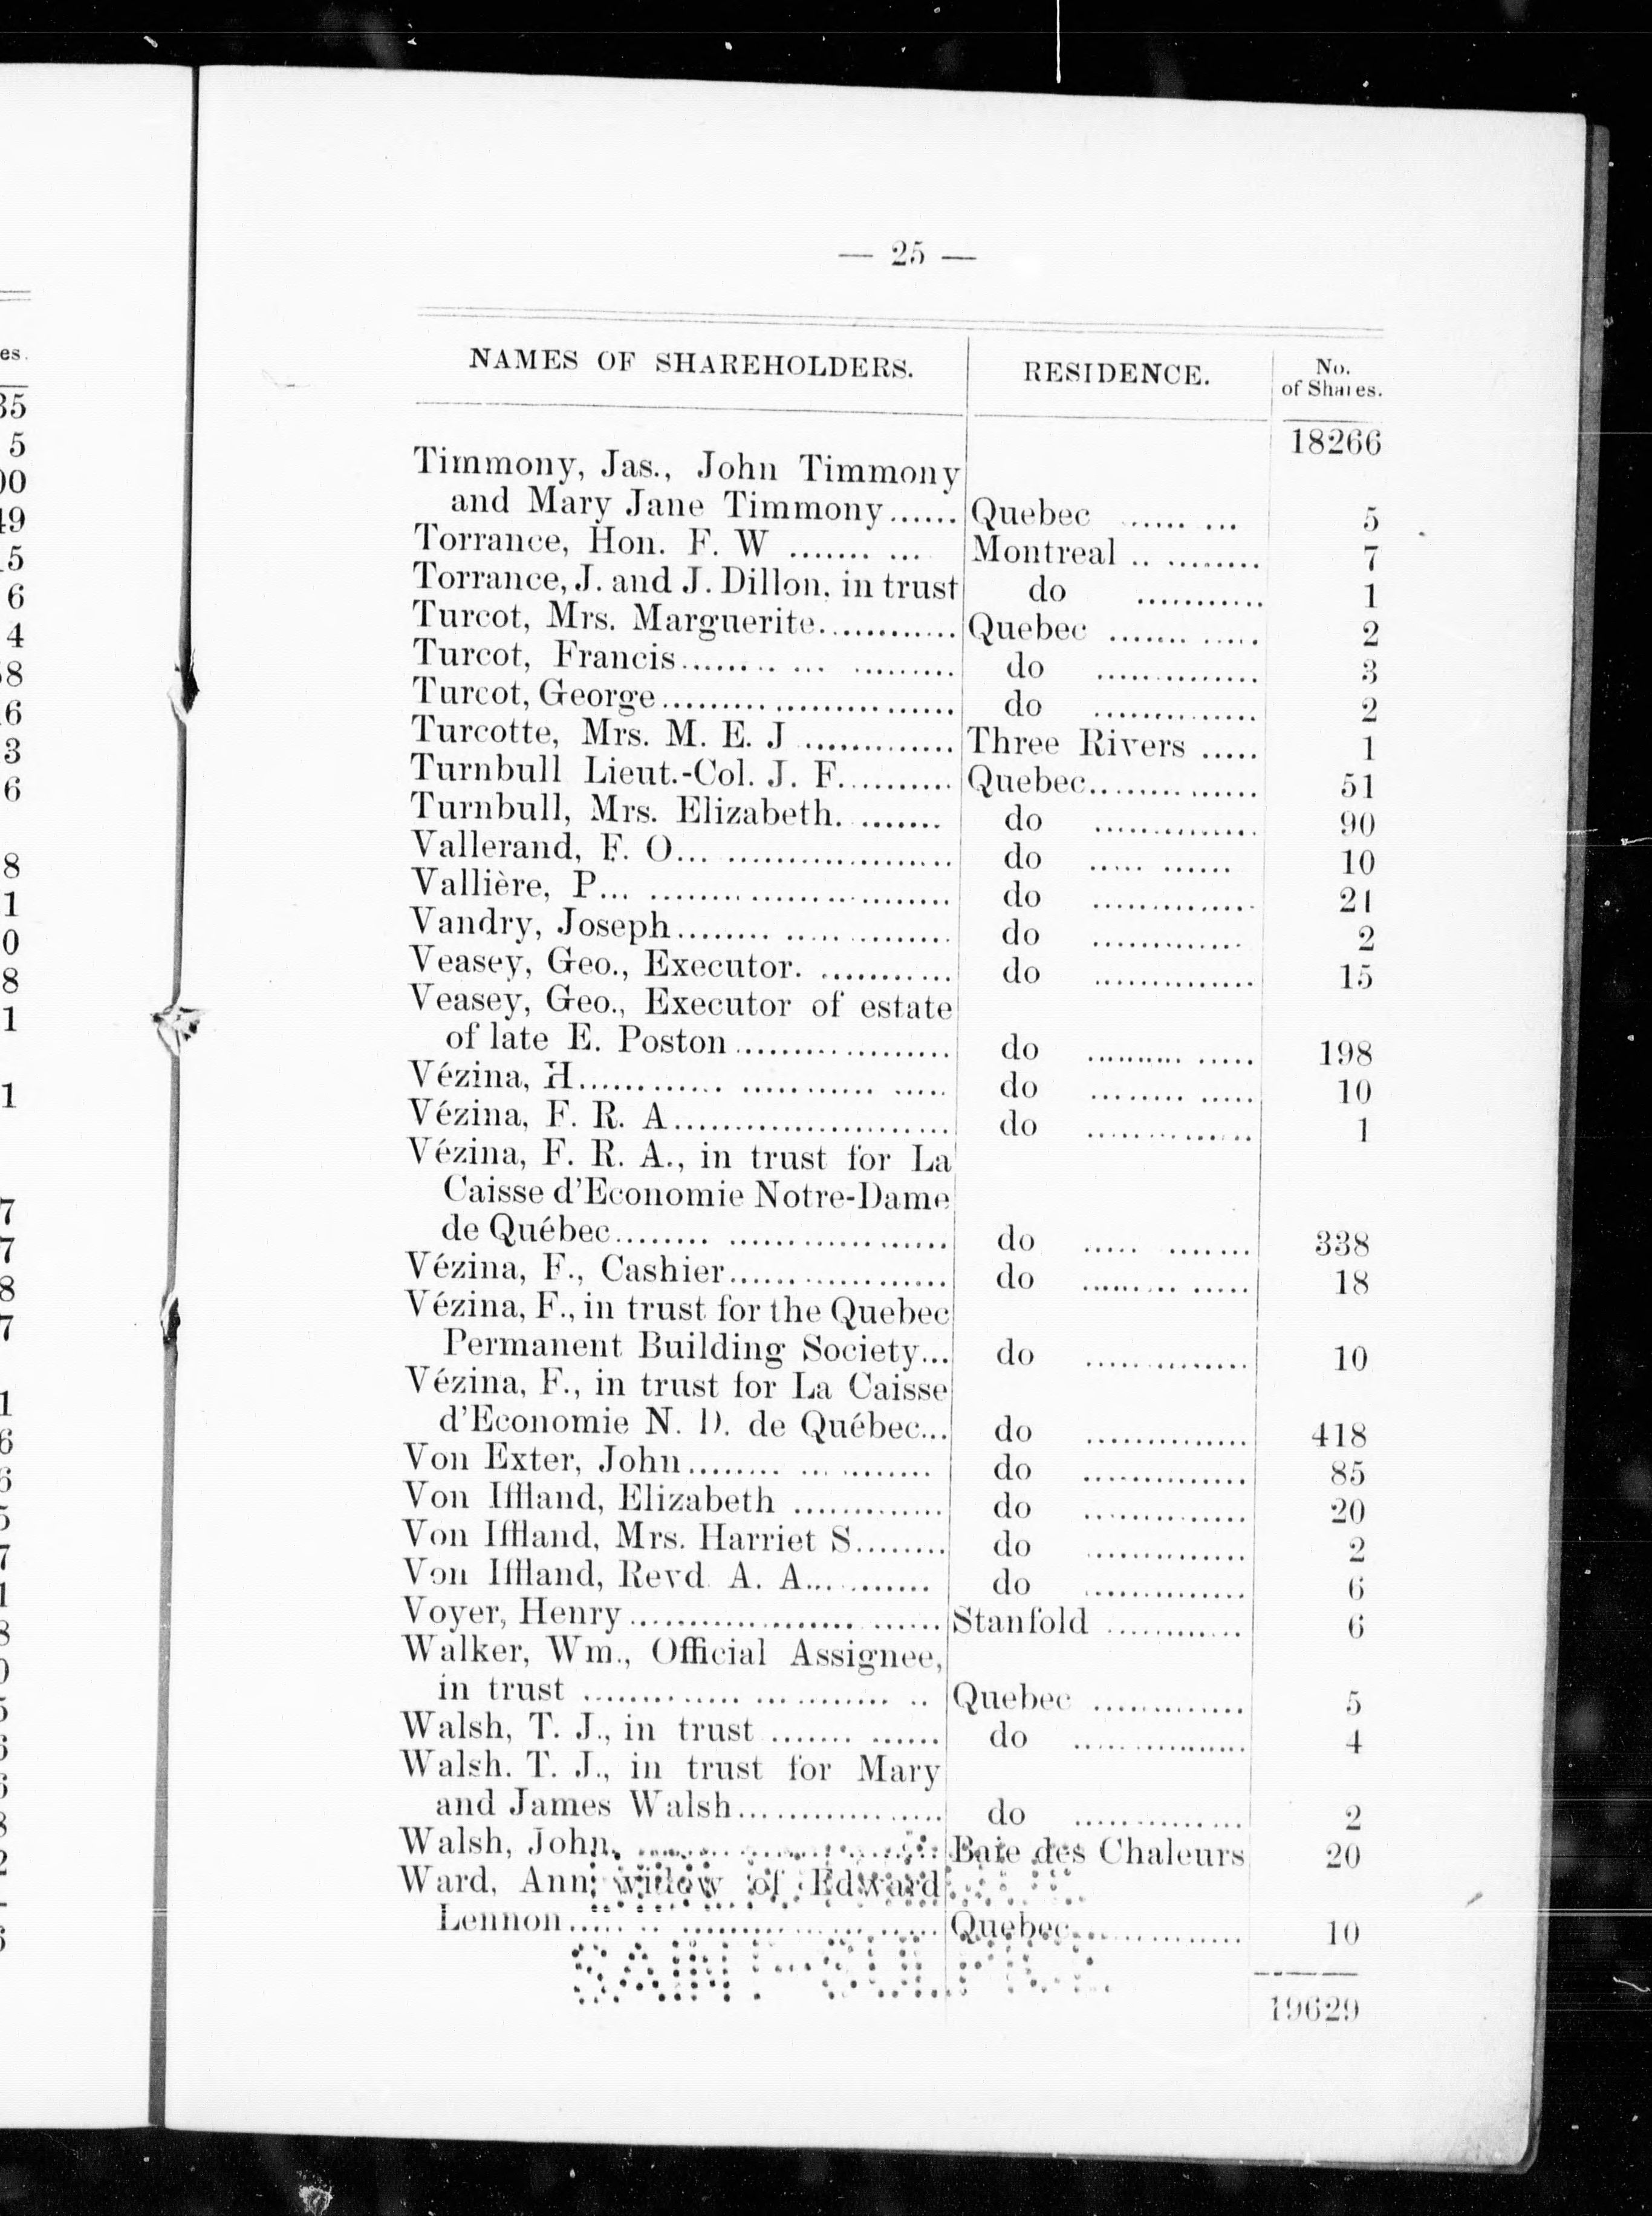 — 25 —
NAMES OF SHAREHOLDERS. RESIDENCE. No. of Shares.
18266
Timmony, Jas., John Timmony
and Mary Jane Timmony...... Quebec ...... ... 5
Torrance, Hon. F. W ....... ... Montreal .. ......... 7
Torrance, J. and J. Dillon, in trust do ........... 1
Turcot, Mrs. Marguerite............. Quebec ....... ..... 2
Turcot, Francis........ ... ......... do .............. 3
Turcot, George............................. do .............. 2
Turcotte, Mrs. M. E. J ............. Three Rivers ..... 1
Turnbull Lieut.-Col. J. F........... Quebec............... 51
Turnbull, Mrs. Elizabeth. ........ do .............. 90
Vallerand, F. O... ..................... do ..... ...... 10
Vallière, P... ............................ do .............. 21
Vandry, Joseph........ ..... ......... do ............. 2
Veasey, Geo., Executor. ............ do .............. 15
Veasey, Geo., Executor of estate
of late E. Poston................... do ......... ..... 198
Vézina, H............. ............ ..... do ........ ..... 10
Vézina, F. R. A......................... do .............. 1
Vézina, F. R. A., in trust for La
Caisse d'Economie Notre-Dame
de Québec........ ................... do ..... ....... 338
Vézina, F., Cashier.................... do ......... ..... 18
Vézina, F., in trust for the Quebec
Permanent Building Society... do .............. 10
Vézina, F., in trust for La Caisse
d'Economie N. D. de Québec... do .............. 418
Von Exter, John........ ... ......... do .............. 85
Von Iffland, Elizabeth ............. do .............. 20
Von Iffland, Mrs. Harriet S........ do .............. 2
Von Iffland, Revd. A. A... ........ do .............. 6
Voyer, Henry..................... ...... Stanfold ............ 6
Walker, Wm., Official Assignee,
in trust .............. ............ .. Quebec ............. 5
Walsh, T. J., in trust ....... ...... do ................ 4
Walsh. T. J., in trust for Mary
and James Walsh.................. do .............. 2
Walsh, John. ......................... Baie des Chaleurs 20
Ward, Ann, widow of Edward
Lennon..... .. ...................... Quebec............... 10
19629
es.
35
5
00
49
5
6
4
58
6
3
6
8
1
0
8
1
1
7
7
8
7
1
6